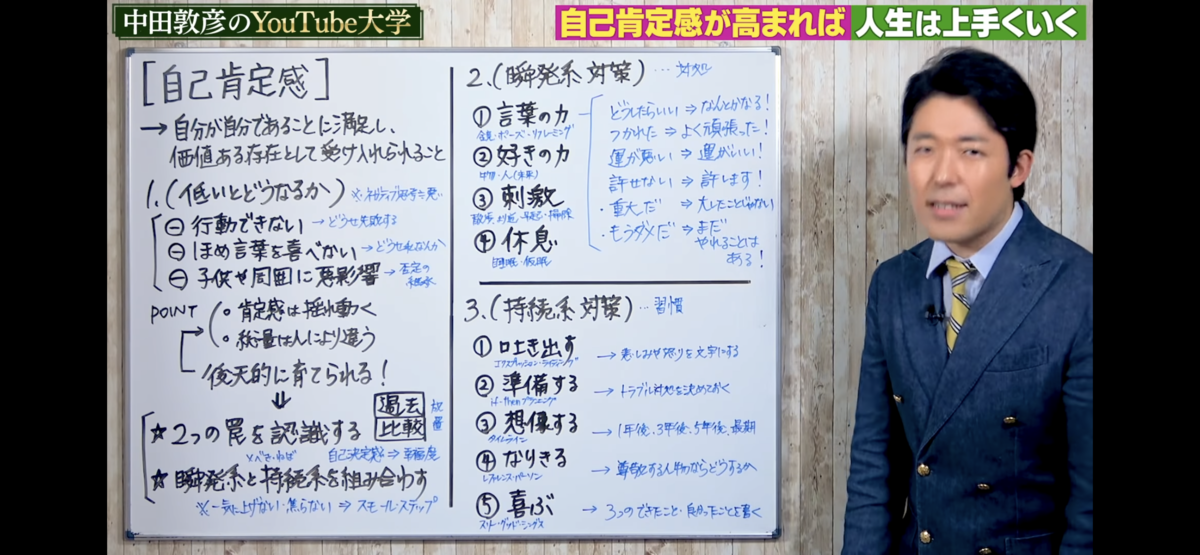 中田敦彦のYouTube大学
自己肯定感が高まれば 人生は上手くいく
[自己肯定感]
→ 自分が自分であることに満足し、
価値ある存在として受け入れられること
1.(低いとどうなるか)
⊖ 行動できない → どうせ失敗する
⊖ ほめ言葉を喜べない → どうせ私なんか
⊖ 子供や周囲に悪影響 → 否定の
POINT
・肯定感は揺れ動く
・総量は人により違う
後天的に育てられる!
⇓
過去
比較
放置
☆ 2つの罠を認識する
べき・ねば 自己決定感 ⇒ 幸福度
☆ 瞬発系と持続系を組み合わす
※一気に上げない・焦らない ⇒ スモール・ステップ
2.(瞬発系 対策) … 対処
① 言葉の力
ポーズ・リフレーミング
② 好きの力
物・人(未来)
③ 刺激
④ 休息
睡眠・仮眠
どうしたらいい ⇒ なんとかなる!
つかれた ⇒ よく頑張った!
運が悪い ⇒ 運がいい!
許せない ⇒ 許します!
・重大だ ⇒ 大したことじゃない
・もうダメだ ⇒ まだ
やれることは
ある!
3.(持続系 対策) … 習慣
① 吐き出す → 悲しみや怒りを文字にする
エクスプレッシブ・ライティング
② 準備する → トラブル対処を決めておく
if-thenプランニング
③ 想像する → 1年後、3年後、5年後、最期
タイムライン
④ なりきる → 尊敬する人物ならどうするか
レファレンス・パーソン
⑤ 喜ぶ → 3つのできたこと・良かったことを書く
スリー・グッド・シングス